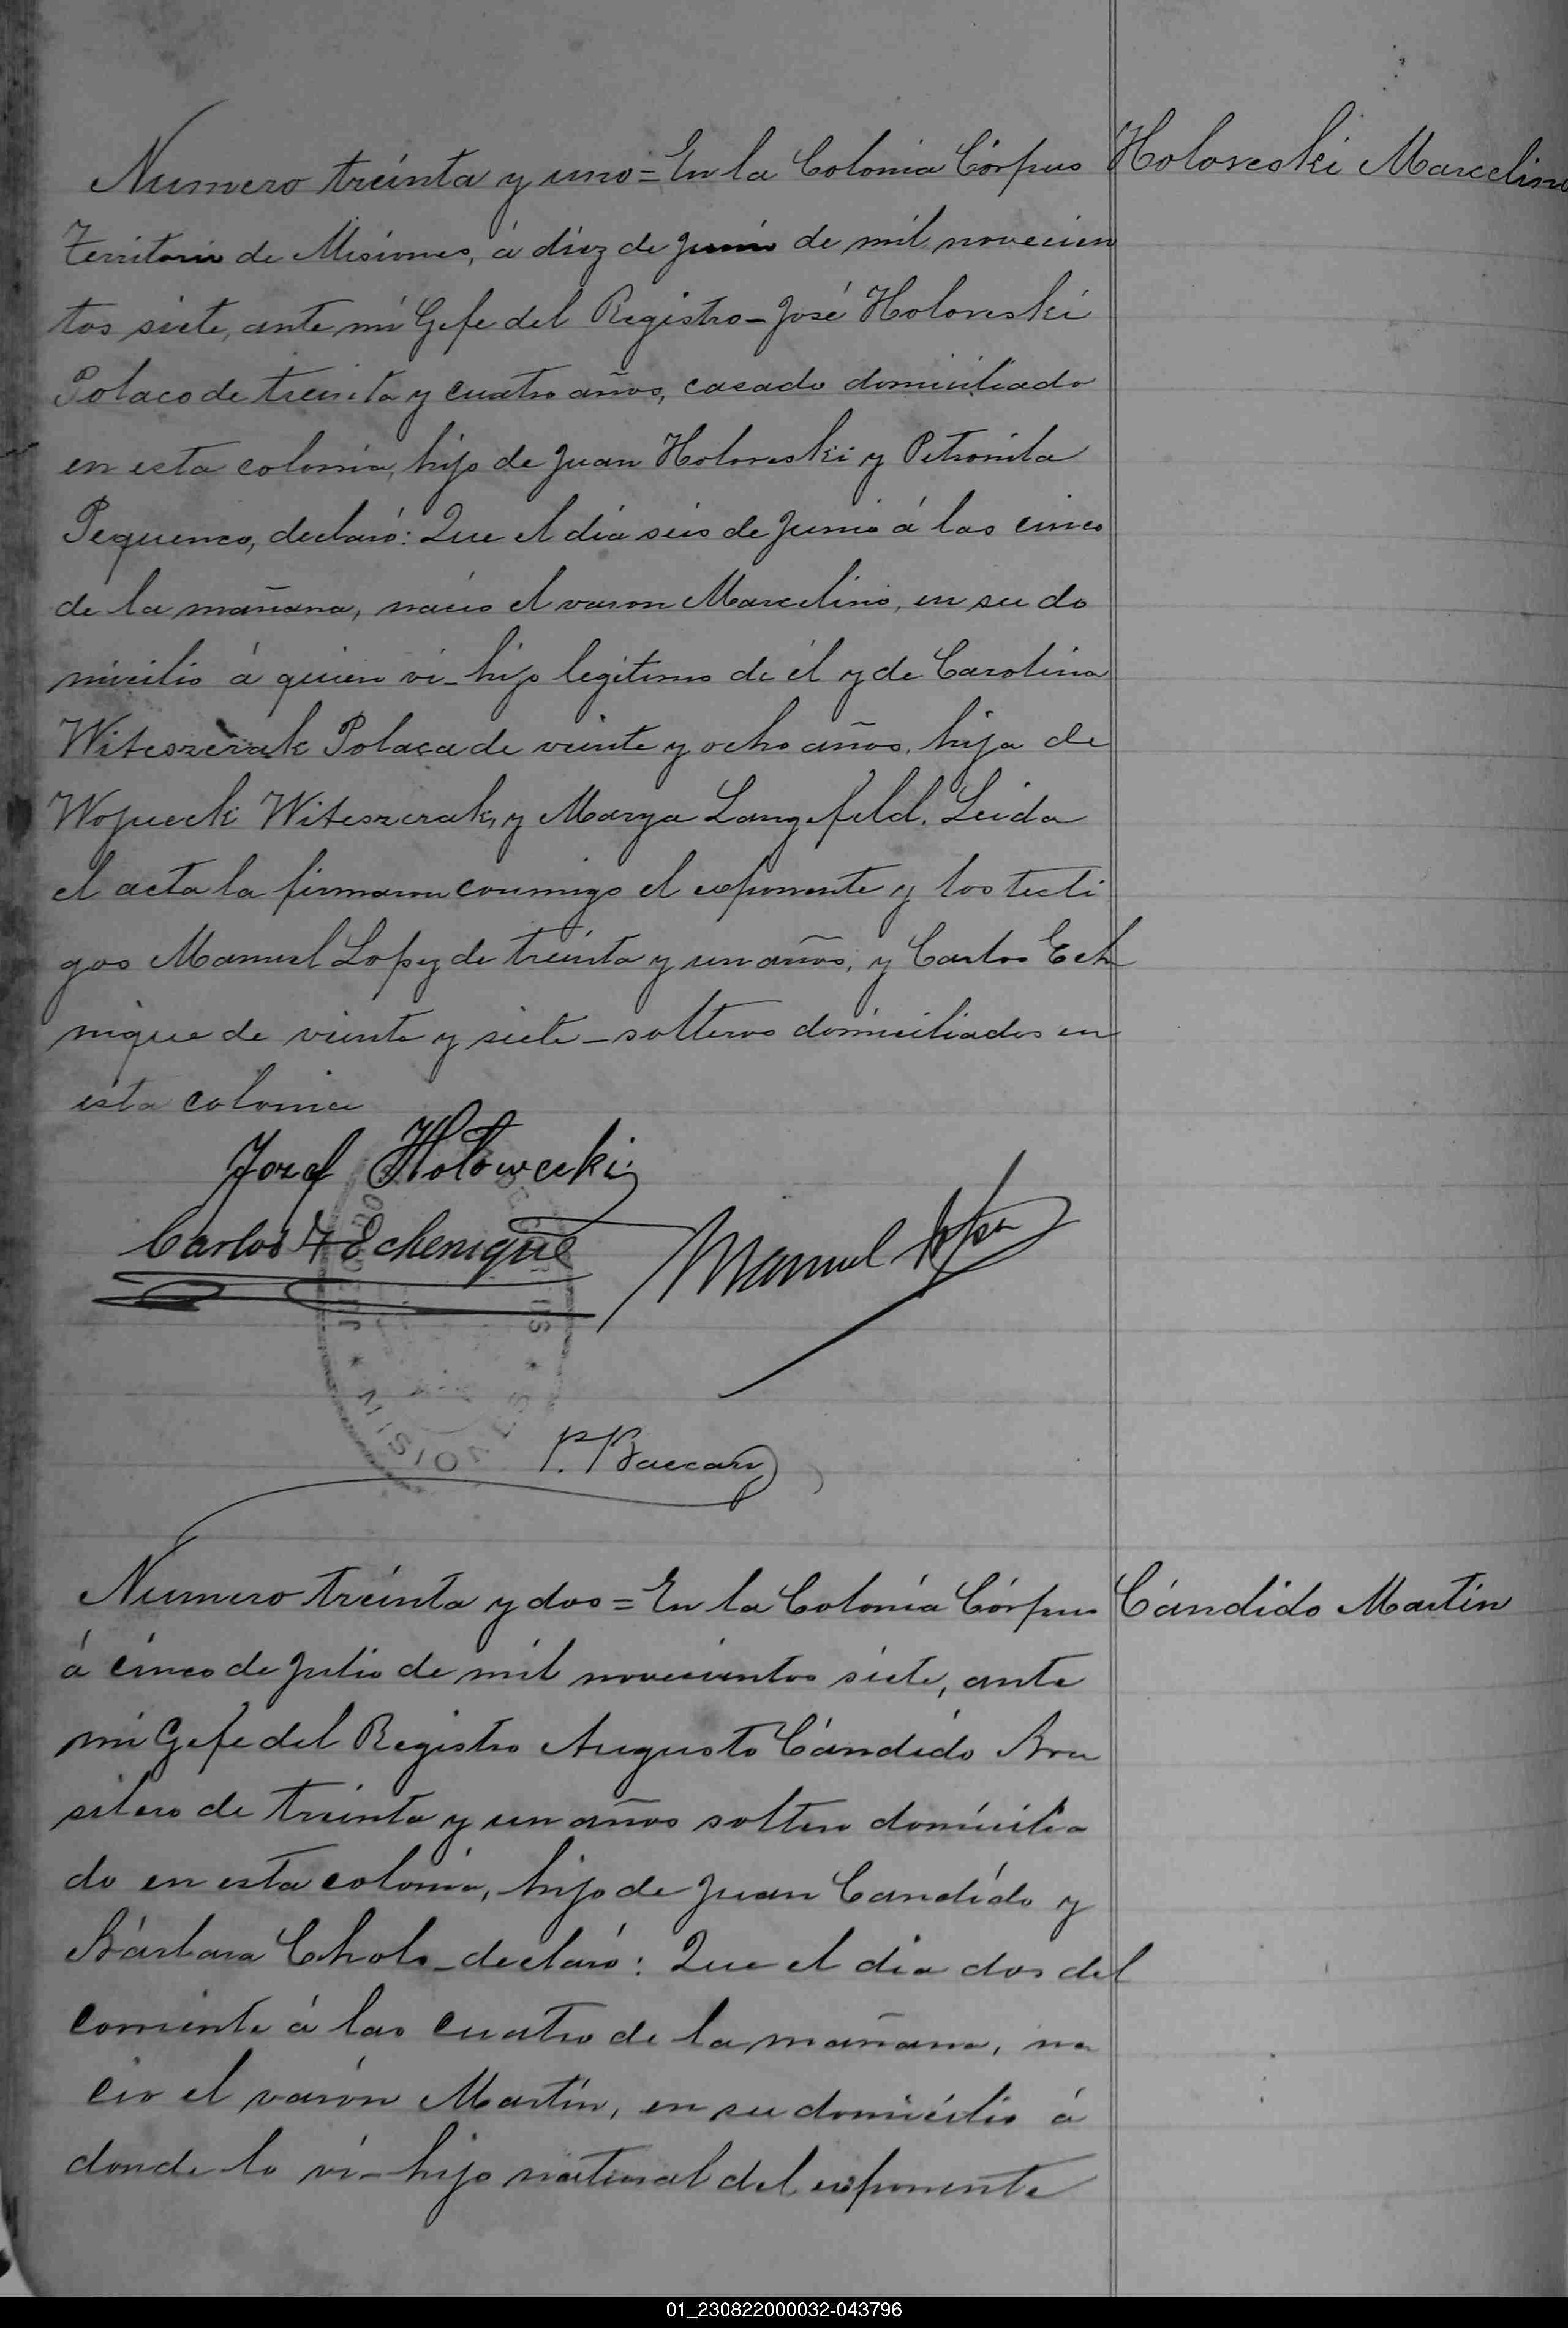 Numero treinta y uno = En la Colonia Córpus
Holoveski Marcelino
Territorio de Misiones, á diez de Junio de mil novecien
tos siete, ante mi Gefe del Registro - José Holoveski
Polaco de treinta y cuatro años, casado domiciliado
en esta colonia, hijo de Juan Holoveski y Petronila
Pequenco, declaró: Que el dia seis de Junio á las cinco
de la mañana, nació el varon Marcelino, en su do
micilio á quien vi - hijo legítimo de él y de Carolina
Witeszerak Polaca de veinte y ocho años, hija de
Wojueck Witeszerak, y Marya Langefeld. Leida
el acta la firmaron conmigo el esponente y los testi
gos Manuel Lopez de treinta y un años, y Carlos Eche
nique de veinte y siete - solteros domiciliados en
esta colonia
Jozef Hołowecki
Carlos F Echenique
Manuel Lopez
MISIONES
P. Baccary
Numero treinta y dos = En la Colonia Córpus
Cándido Martin
á cinco de Julio de mil novecientos siete, ante
mi Gefe del Registro Augusto Cándido Bra
silero de treinta y un años soltero domicilia
do en esta colonia, hijo de Juan Candido y
Bárbara Chols - declaró: Que el dia dos del
corriente á las cuatro de la mañana, na
cio el varón Martín, en su domicilio á
donde lo ví - hijo natural del esponente
01_230822000032-043796